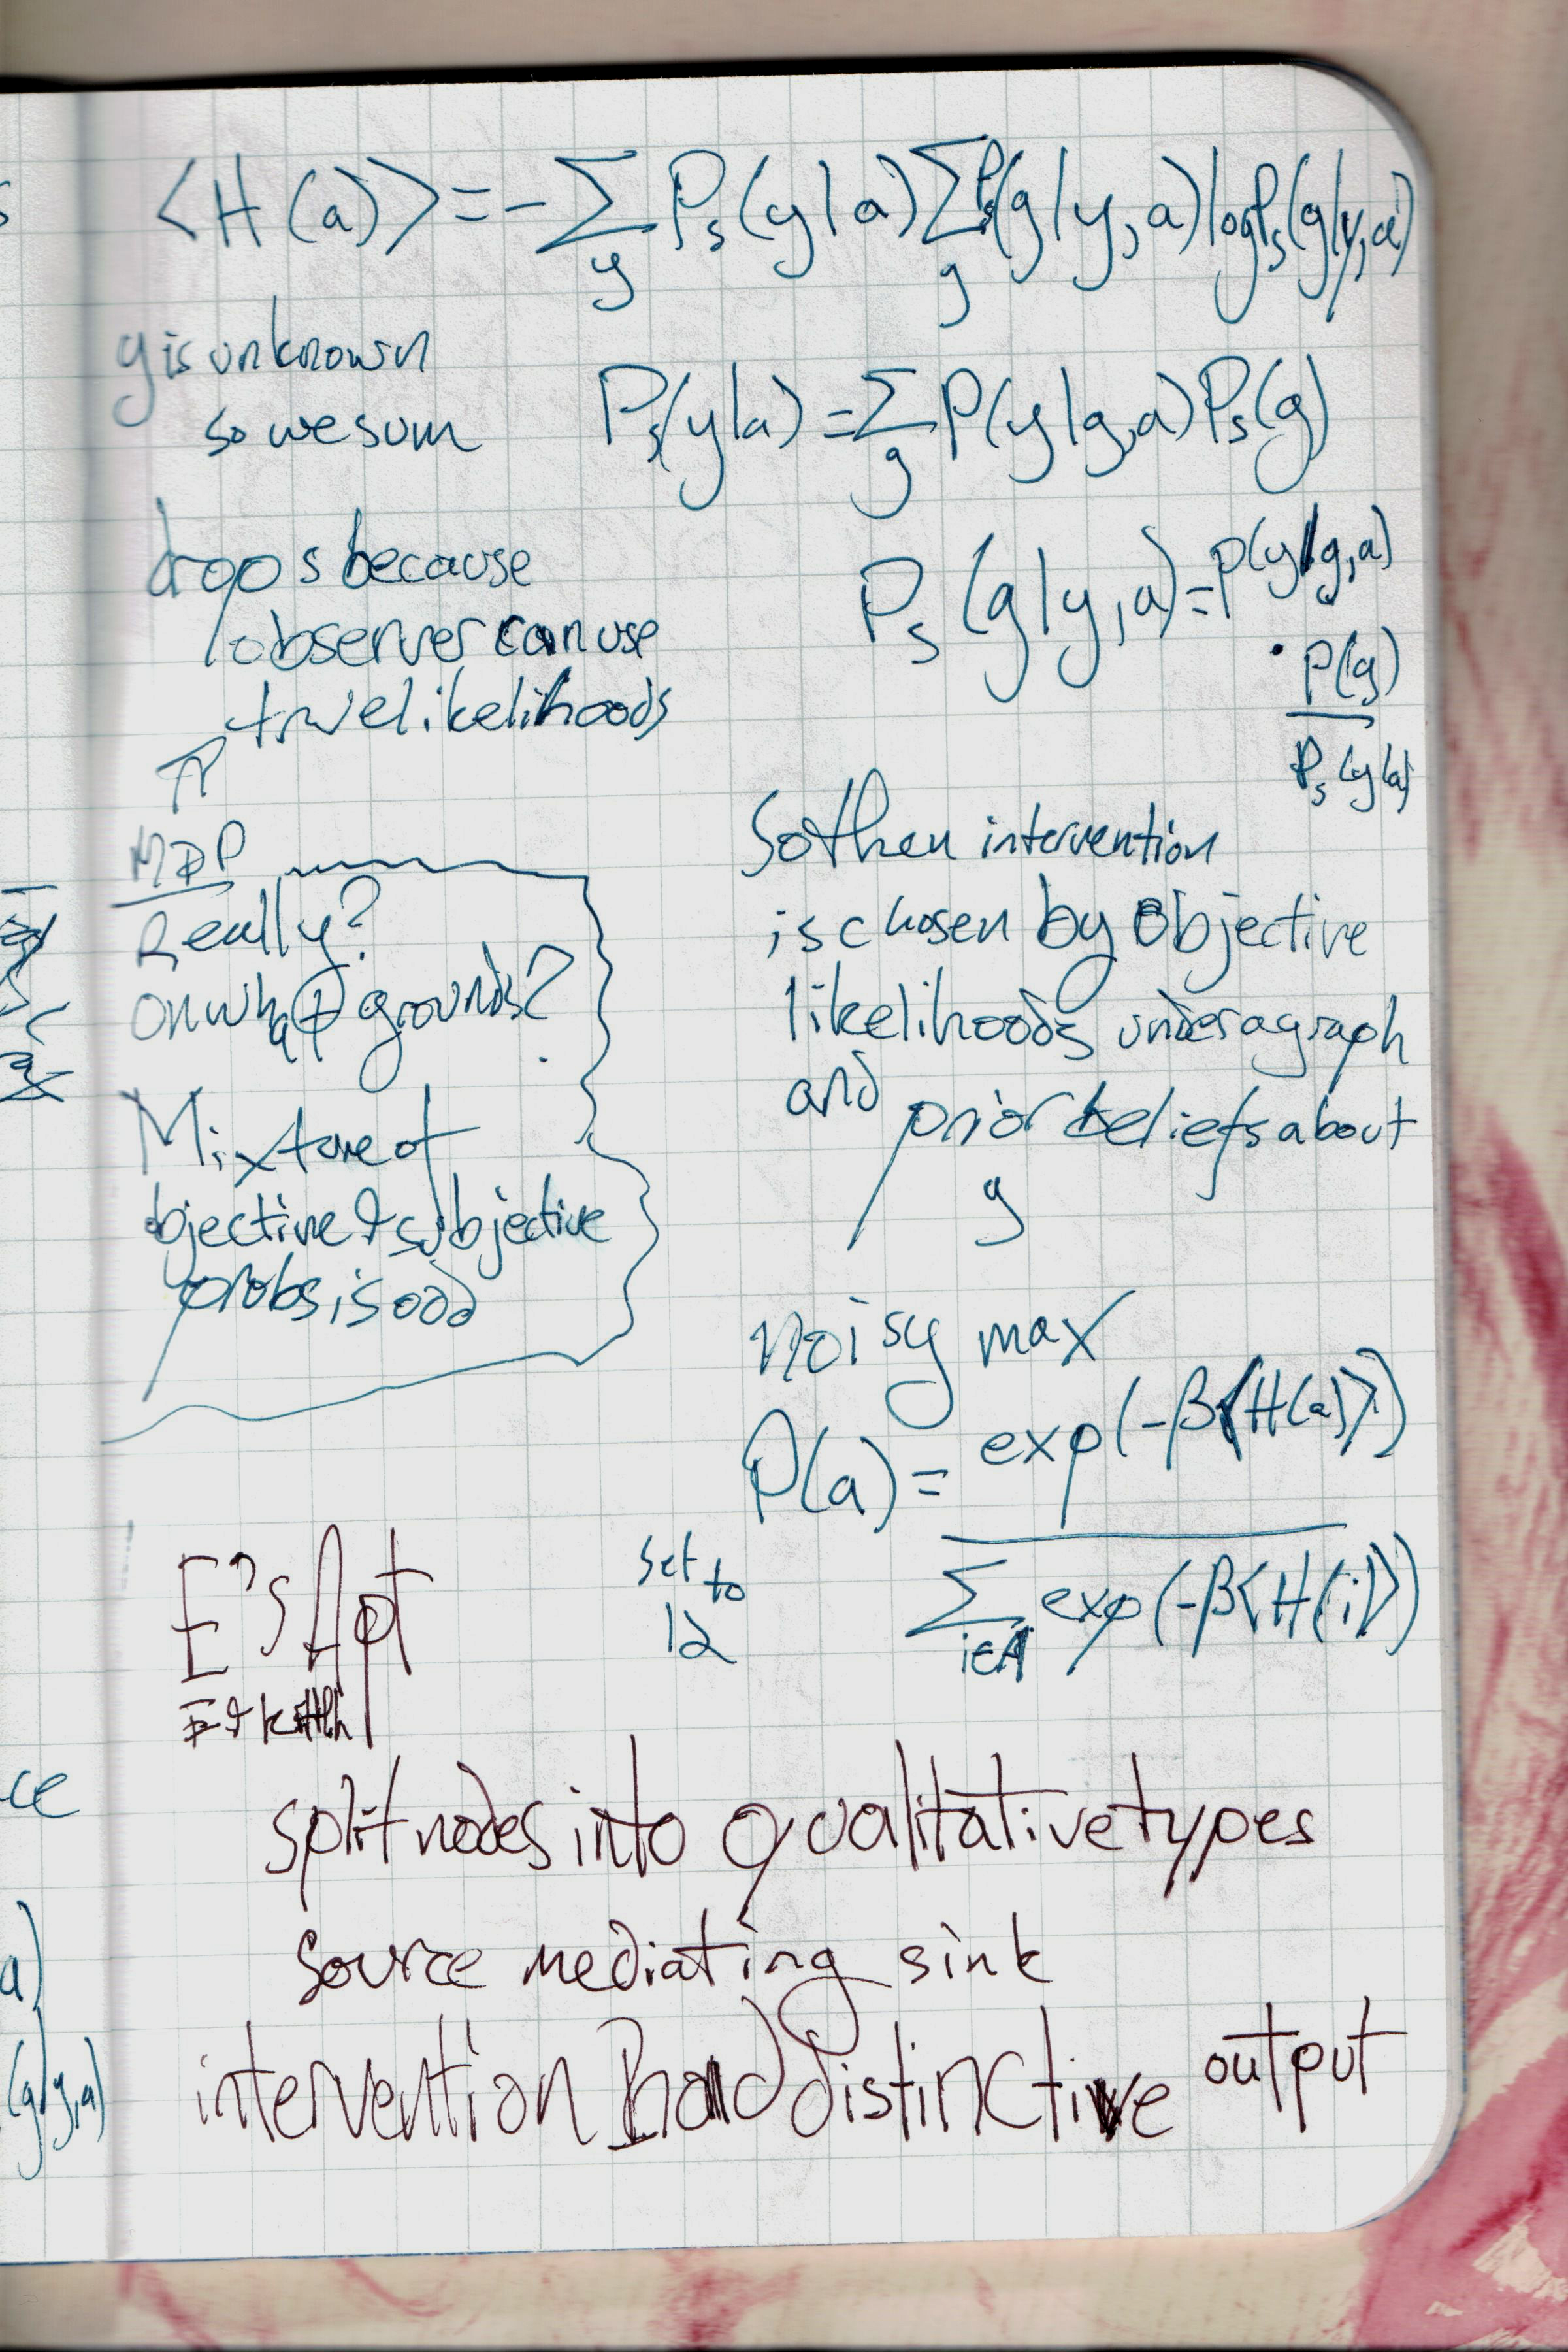 ⟨H(a)⟩ = -∑_y P_s(y|a) ∑_g P_s(g|y,a) log P_s(g|y,a)
g is unknown
so we sum
P_s(y|a) = ∑_g P(y|g,a) P_s(g)
drop s because
observer can use
true likelihoods
P_s(g|y,a) = P(y|g,a)
· P(g)
P_s(y|a)
MDP
Really?
on what grounds?
Mixture of
objective & subjective
probs is odd
So then intervention
is chosen by objective
likelihoods under a graph
and prior beliefs about
g
noisy max
P(a) = exp(-β⟨H(a)⟩)
∑_{i∈A} exp(-β⟨H(i)⟩)
set to
12
E's Apt
split nodes into qualitative types
source mediating sink
intervention had distinctive output
ce
a)
(g|y,a)